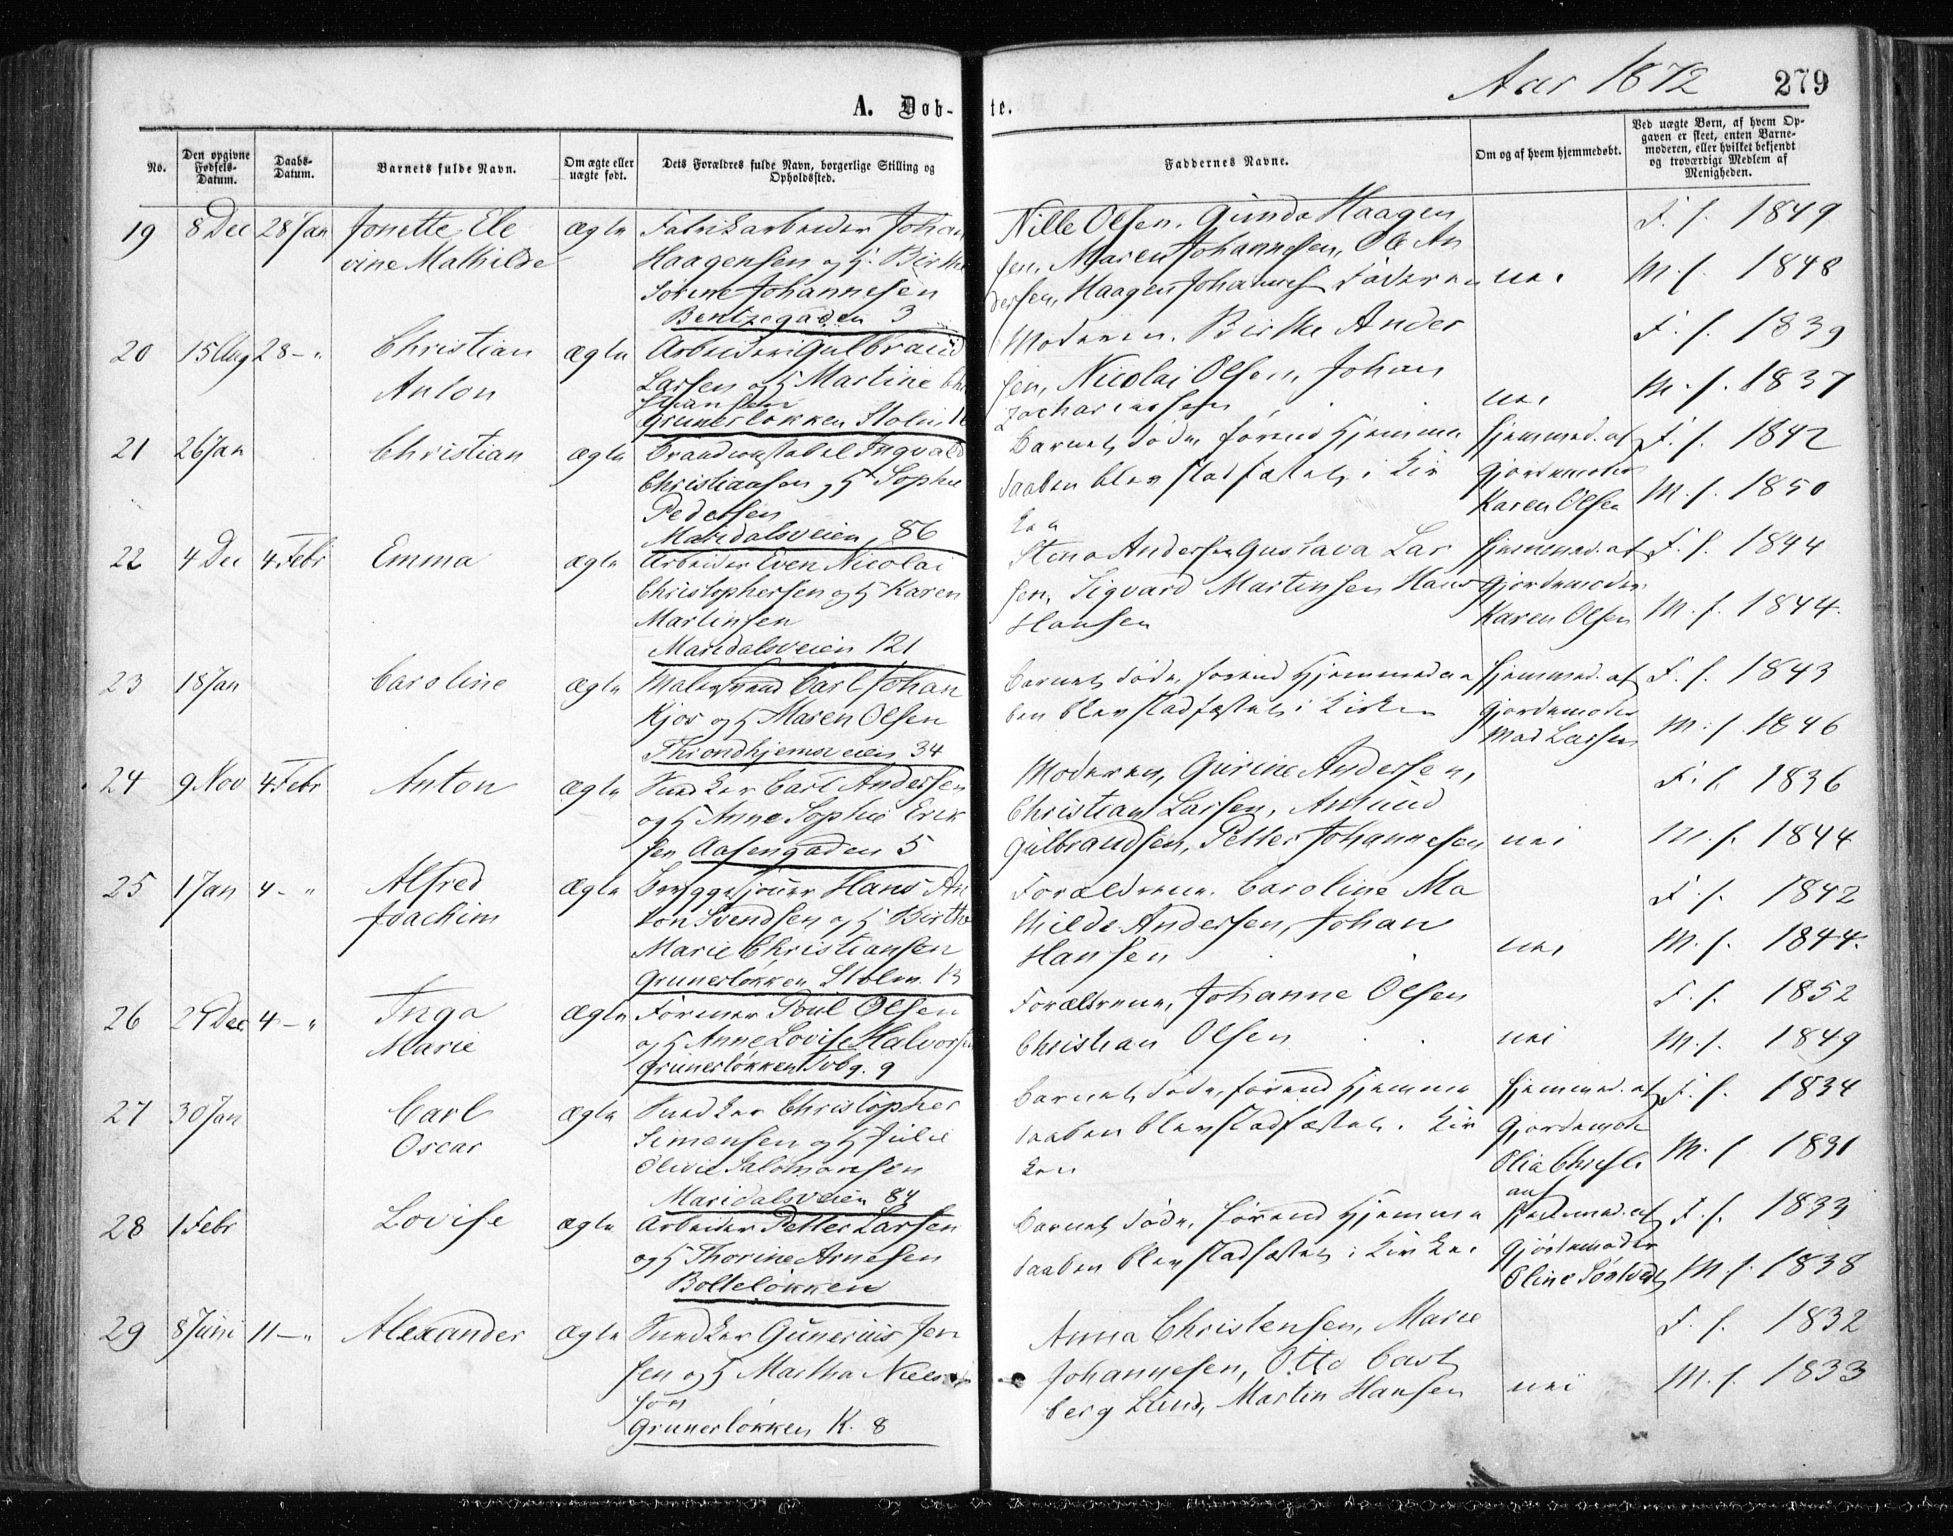 Aar 1872
279
A. Døb-
te.
No.
Den opgivne Fødsels-Datum.
Daabs-Datum.
Barnets fulde Navn.
Om ægte eller uægte født.
Dets Forældres fulde Navn, borgerlige Stilling og Opholdssted.
Faddernes Navne.
Om og af hvem hjemmedøbt.
Ved uægte Børn, af hvem Op-
gaven er skeet, enten Barne-
moderen, eller hvilket bekjendt
og troværdigt Medlem af
Menigheden.
19 8 Dec 28 Jan Jonette Ele ægte Fabrikarbeider Johan
vine Mathilde Haagensen og H. Birthe
Sorine Johannesen
Bentzegaden 3
Nille Olsen, Gunda Haagen F. f. 1849
sen, Maren Johannesen, Ole An
dersen, Haagen Johannes Faderen nei M. f. 1848
20 15 Aug 28 – " Christian ægte Arbeider Gulbrand
Anton Larsen og H Martine Chr
istiansen
Grünerløkken Holm
Moderen, Birthe Ander F. f. 1839
sen, Nicolai Olsen, Johan
Zachariassen nei M. f. 1837
21 26 Jan Christian ægte Brandconstabel Ingvald
Christiansen og H Sophie
Pedersen
Maridalsveien 86
Barnet døde, førend Hjemme Hjemmed. af F. f. 1842
daaben blev stadfæstet i Kir Gjordemoder M. f. 1850
ken Karen Olsen
22 4 Dec 4 Febr Emma ægte Arbeider Even Nicolai
Christophersen og H Karen
Martinsen
Maridalsveien 121
Stena Andersen Gustava Lar Hjemmed. af F. f. 1844
sen, Sigvard Martinsen Hans Gjordemoder M. f. 1844.
Hansen Karen Olsen
23 18 Jan Caroline ægte Malersvend Carl Johan
Kjos og H Maren Olsen
Throndhjemsveien 34
Barnet døde, førend Hjemmedaa Hjemmed. af F. f. 1843
ben blev stadfæstet i Kirken Gjordemoder
Mad Larsen M. f. 1846
24 9 Nov 4 Febr Anton ægte Snedker Carl Andersen
og H Anne Sophie Erik
sen Aasengaden 5
Moderen, Gurine Andersen, F. f. 1836
Christian Larsen, Amund
Gulbrandsen, Petter Johannesen nei M. f. 1844
25 1 Jan 4 – " Alfred ægte Bryggesjouer Hans An
Joachim ton Svendsen og H Birthe
Marie Christiansen
Grünerløkken Holm. 13
Forældrene, Caroline Ma F. f. 1842
thilde Andersen, Johan
Hansen nei M. f. 1844.
26 29 Dec 4 – " Inga ægte Former Poul Olsen
Marie og H Anne Lovise Halvorsen
Grünerløkken Tvbg. 9
Forældrene, Johanne Olsen F. f. 1852
Christian Olsen nei M. f. 1849
27 30 Jan Carl ægte Snedker Christopher
Oscar Simensen og H Julie
Olivie Salomonsen
Maridalsveien 84
Barnet døde, førend Hjemme Hjemmed. af F. f. 1834
daaben blev stadfæstet i Kir Gjordemoder
ken Olia Christi M. f. 1831
ans
28 1 Febr Lovise ægte Arbeider Petter Larsen
og H Thorine Arnesen
Bolteløkken
Barnet døde, førend Hjemme Hjemmed. af F. f. 1833
daaben blev stadfæstet i Kirken Gjordemoder
Oline M. f. 1838
29 8 Juni 11 – " Alexander ægte Snedker Gunerius Jen
sen og H Martha Niels
søn
Grünerløkken K. 8
Anna Christensen, Marie F. f. 1832
Johannesen, Otto Carl
berg Lund, Martin Hansen nei M. f. 1833